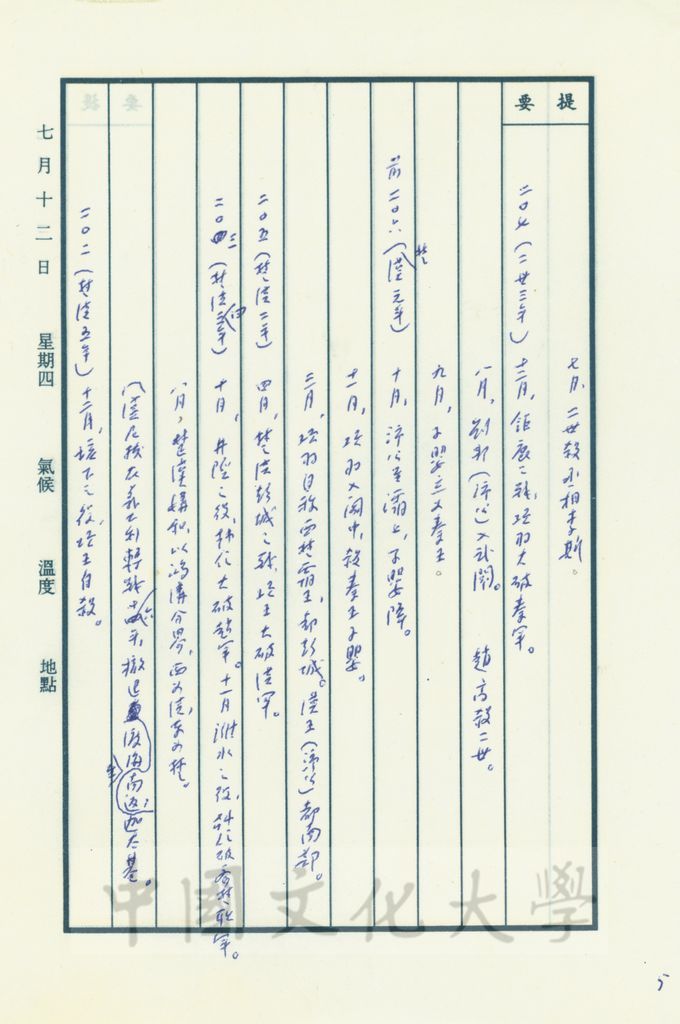 提要
七月，二世殺丞相李斯。
二〇七（二世三年）十二月，鉅鹿之戰，項羽大破秦軍。
八月，劉邦（沛公）入武關。 趙高殺二世。
九月，子嬰立為秦王。
前二〇六（楚漢元年）十月，沛公至灞上，子嬰降。
十一月，項羽入關中，殺秦王子嬰。
三月，項羽自稱西楚霸王，都彭城。漢王（沛公）都南鄭。
二〇五（楚漢二年）四月，楚漢彭城之戰，項王大破漢軍。
二〇三（楚漢四年）十月，井陘之役，韓信大破趙軍。十一月濰水之役，韓信破齊楚聯軍。
八月，楚漢媾和，以鴻溝分界，西為漢，東為楚。
（漢尼拔在義大利轉戰十六年，撤退渡海南返迦太基。
二〇二（楚漢五年）十二月，垓下之役，項王自殺。
七月十二日 星期四 氣候 溫度 地點
中國文化大學
5